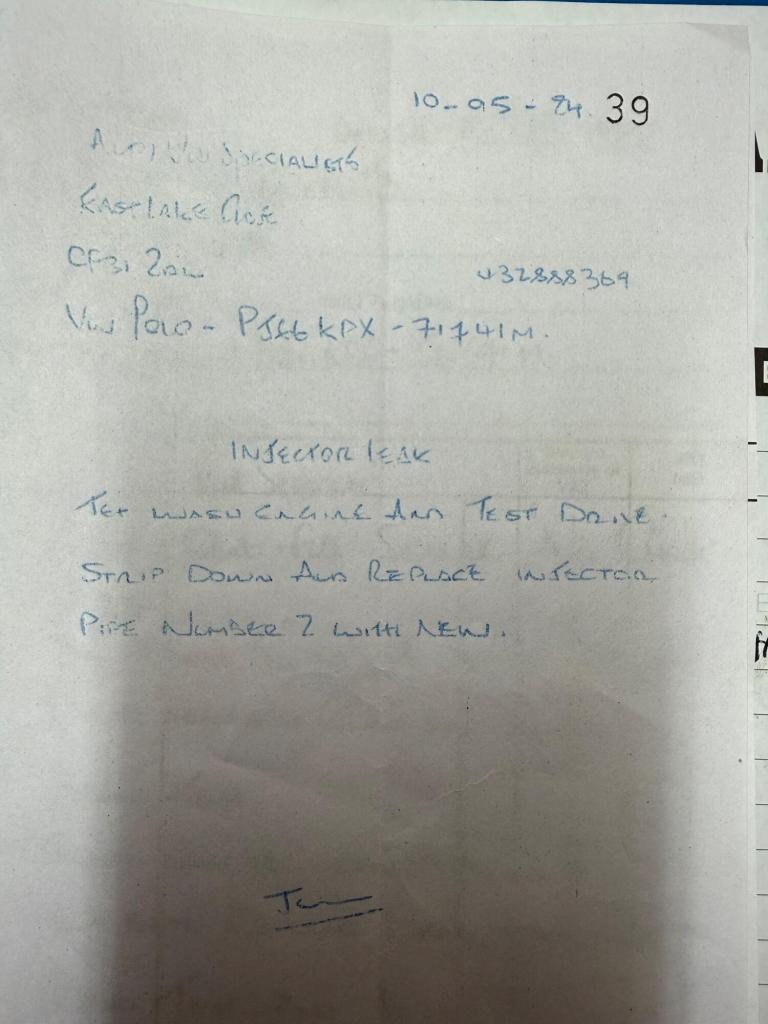 10-05-24. 39
SPECIALISTS
EAST LAKE
CF31
VW POLO - KDX - 71741M.
INJECTOR LEAK
JET WASH ENGINE AND TEST DRIVE.
STRIP DOWN AND REPLACE INJECTOR
PIPE NUMBER 2 WITH NEW.